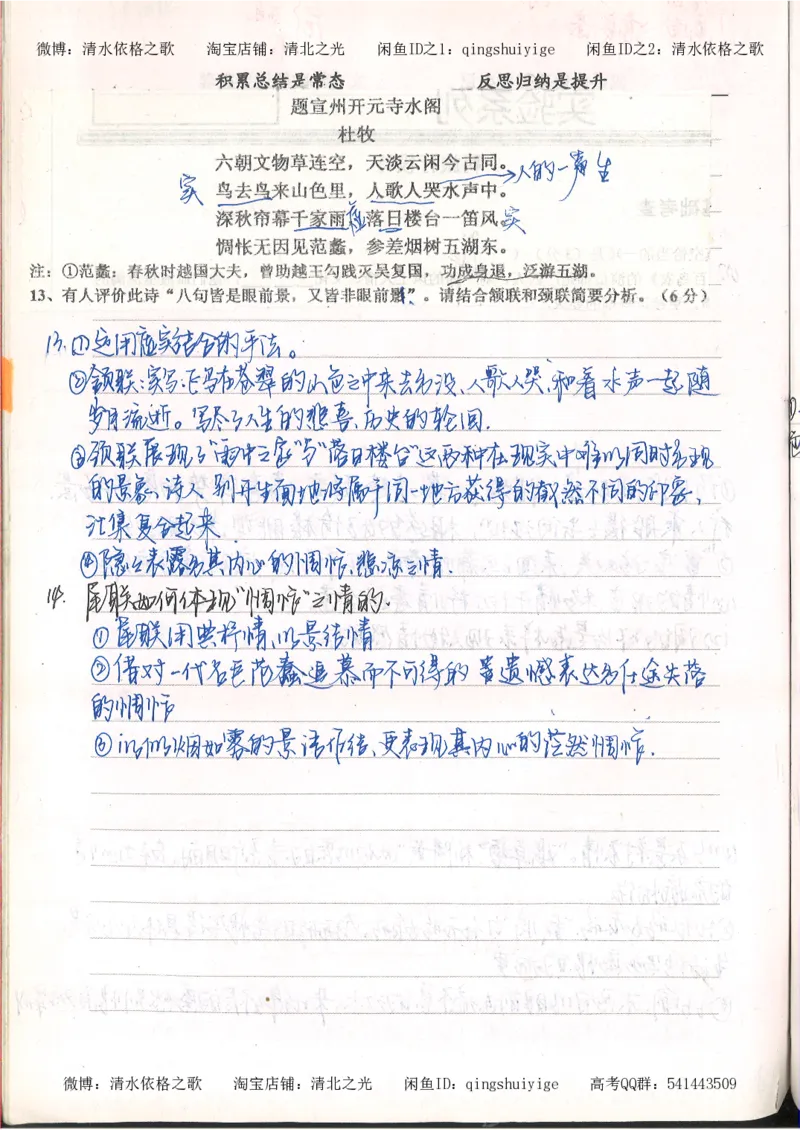 微博：清水依格之歌 淘宝店铺：清北之光 闲鱼ID之1：qingshuiyige 闲鱼ID之2：清水依格之歌
积累总结是常态 反思归纳是提升
题宣州开元寺水阁
杜牧
六朝文物草连空，天淡云闲今古同。
人的一声生
实 鸟去鸟来山色里，人歌人哭水声中。
深秋帘幕千家雨虚落日楼台一笛风。实
惆怅无因见范蠡，参差烟树五湖东。
注：①范蠡：春秋时越国大夫，曾助越王勾践灭吴复国，功成身退，泛游五湖。
13、有人评价此诗“八句皆是眼前景，又皆非眼前景”。请结合颔联和颈联简要分析。（6分）
13.①运用虚实结合的手法。
②颔联：实写：飞鸟在苍翠的山色之中来去出没、人歌人哭、和着水声一起随
岁月流逝。写尽了人生的悲喜、历史的轮回.
③颈联展现了“雨中之家”与“落日楼台”这两种在现实中难以同时出现
的景象，诗人别开生面地将属于同一地方获得的截然不同的印象、
汇集复合起来.
④隐隐表露出其内心的惆怅、悲凉之情.
14. 尾联如何体现“惆怅”之情的.
①尾联用典抒情,以景结情
②借对一代名臣范蠡追慕而不可得的 遗憾表达出仕途失落
的惆怅
③以似烟如雾的景语作结、更表现其内心的茫然惆怅.
微博：清水依格之歌 淘宝店铺：清北之光 闲鱼ID：qingshuiyige 高考QQ群：541443509